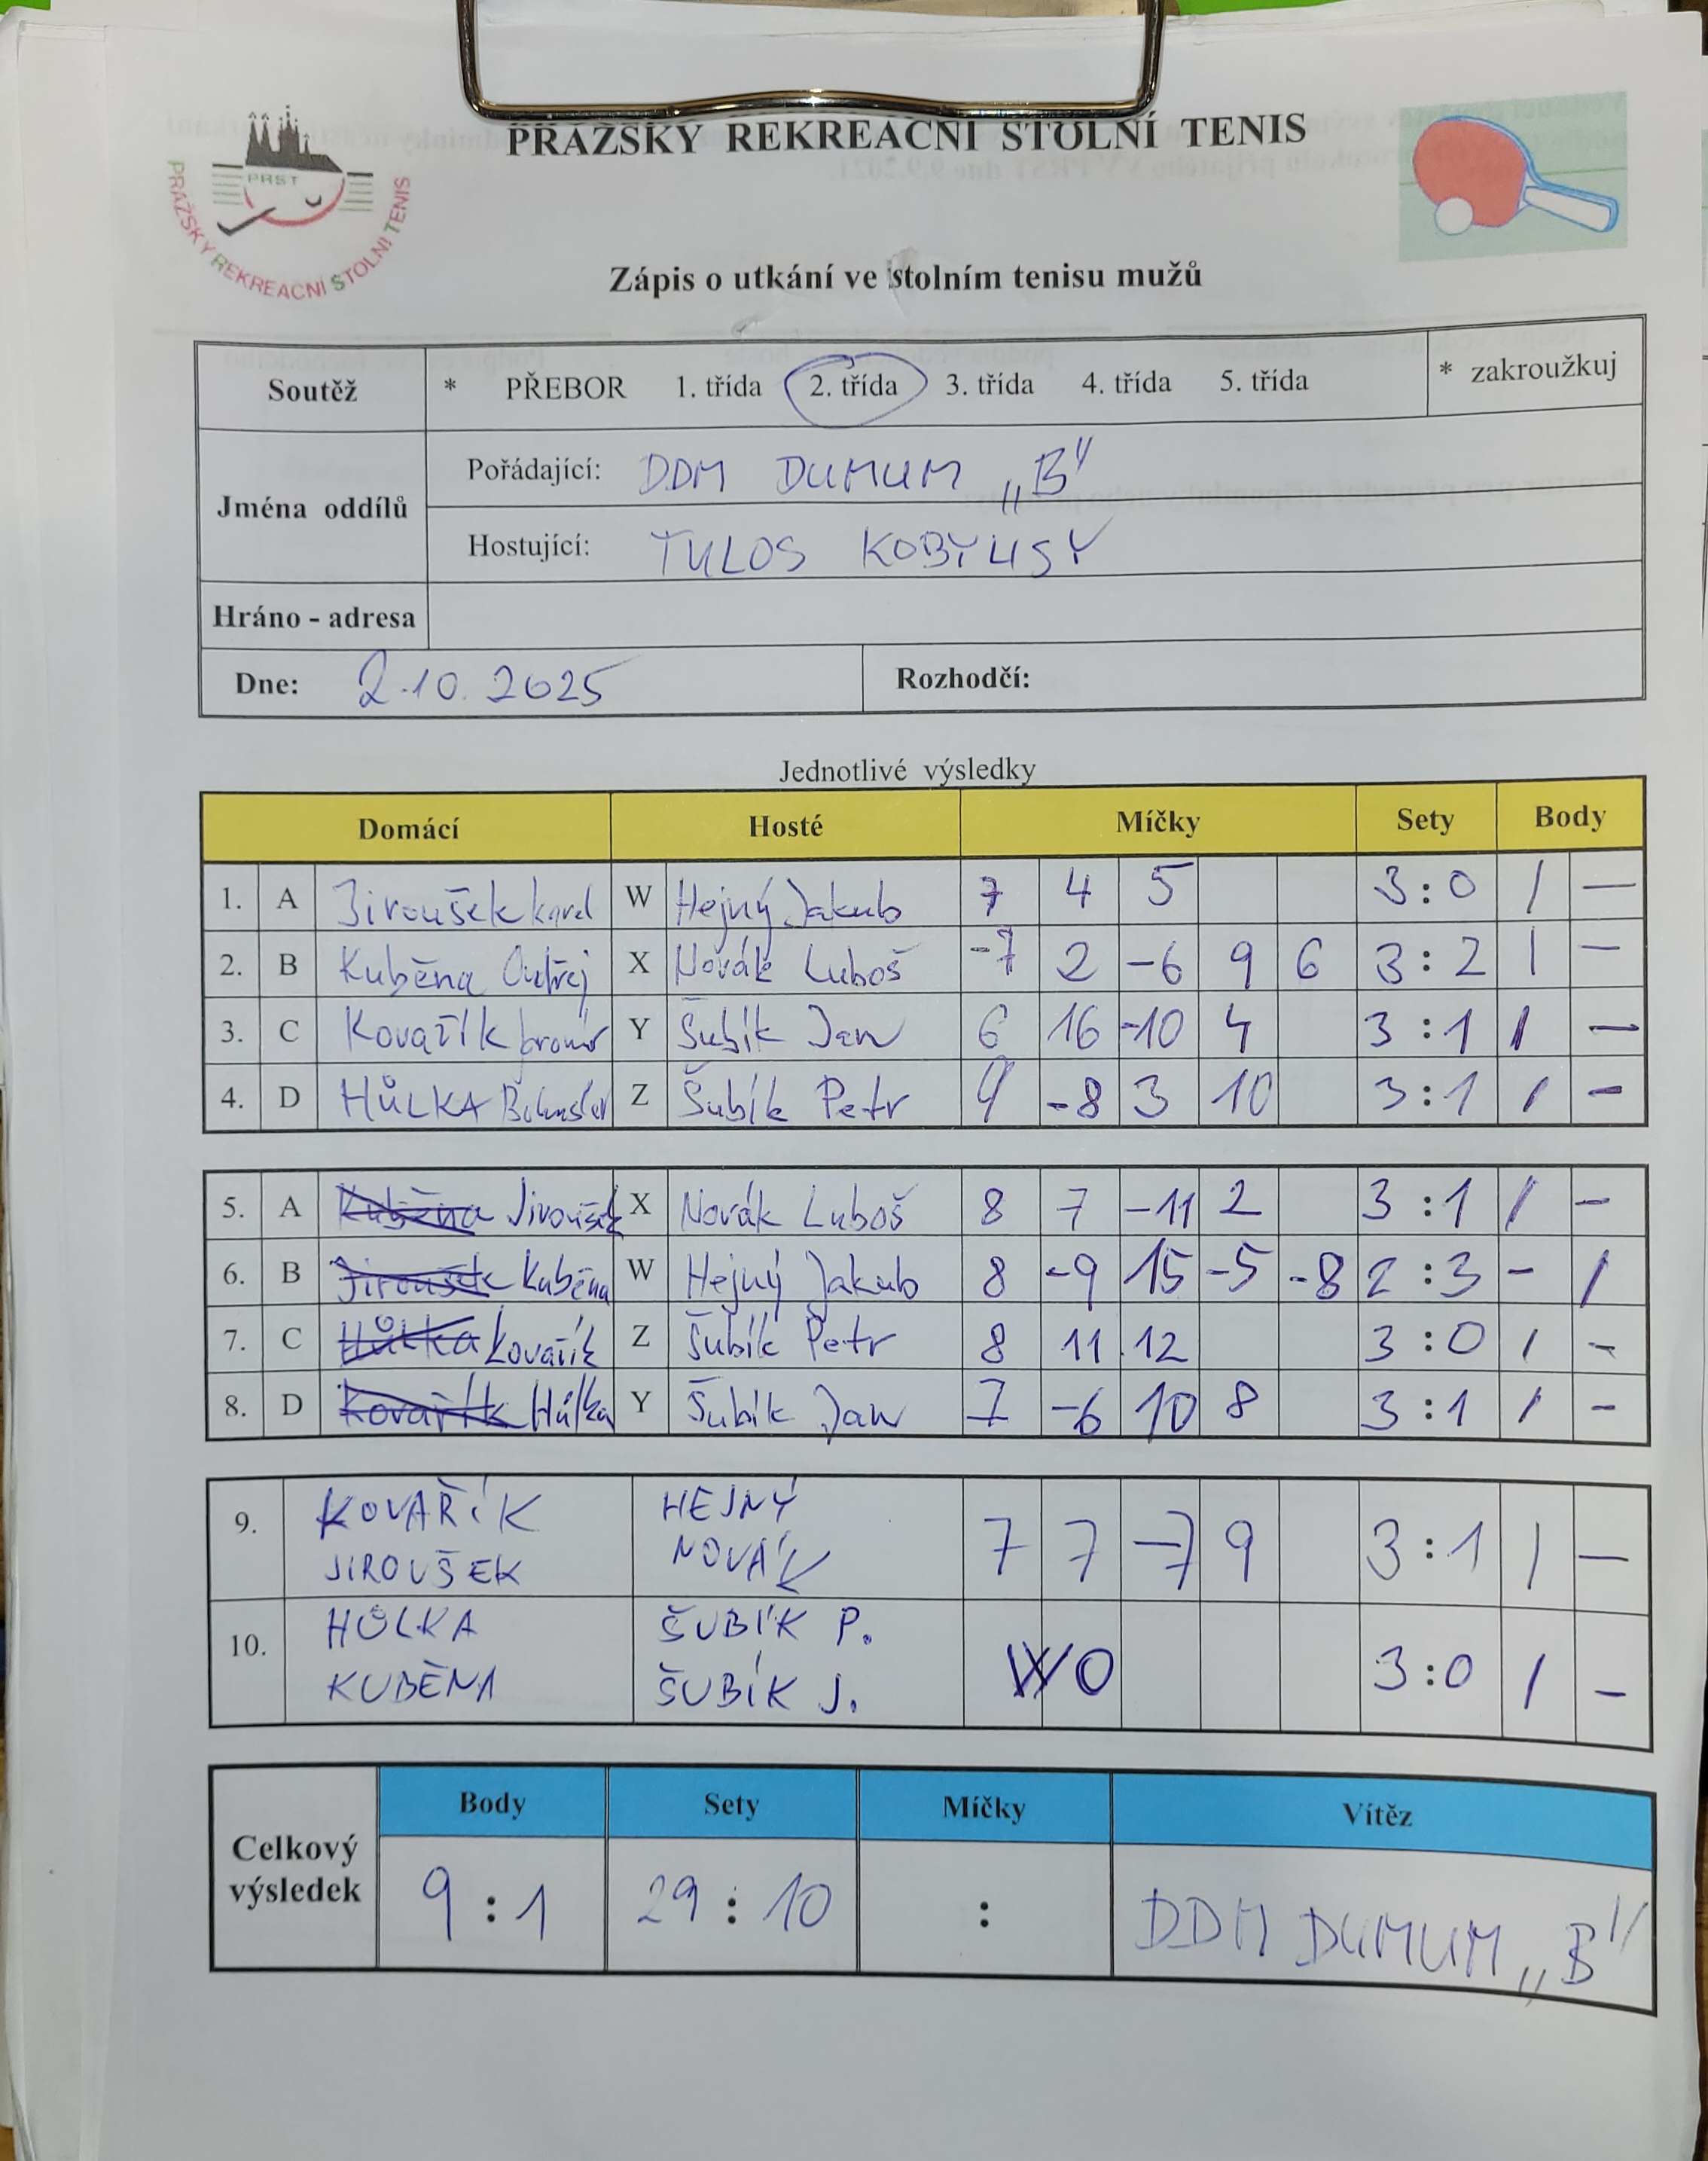 PRAŽSKÝ REKREAČNÍ STOLNÍ TENIS
PRST
PRAŽSKÝ REKREAČNÍ STOLNÍ TENIS
Zápis o utkání ve stolním tenisu mužů
Soutěž * PŘEBOR 1. třída 2. třída 3. třída 4. třída 5. třída * zakroužkuj
Jména oddílů
Pořádající: DDM DUMUM „B"
Hostující: TULOS KOBYLISY
Hráno - adresa
Dne: 2.10.2025 Rozhodčí:
Jednotlivé výsledky
Domácí Hosté Míčky Sety Body
1. A Jiroušek Karel W Hejný Jakub 7 4 5 3:0 / —
2. B Kuběna Ondřej X Novák Luboš -7 2 -6 9 6 3:2 | —
3. C Kovařík Y Šubík Jan 6 16 -10 4 3:1 / —
4. D HŮLKA Z Šubík Petr 9 -8 3 10 3:1 / -
5. A Kuběna Jiroušek X Novák Luboš 8 7 -11 2 3:1 / -
6. B Jiroušek Kuběna W Hejný Jakub 8 -9 15 -5 -8 2:3 - /
7. C Hůlka Kovařík Z Šubík Petr 8 11 12 3:0 / -
8. D Kovařík Hůlka Y Šubík Jan 7 -6 10 8 3:1 / -
9. KOVAŘÍK HEJNÝ 7 7 -7 9 3:1 | —
JIROUŠEK NOVÁK
10. HŮLKA ŠUBÍK P. WO 3:0 / -
KUBĚNA ŠUBÍK J.
Celkový výsledek
Body Sety Míčky Vítěz
9:1 29:10 : DDM DUMUM „B"